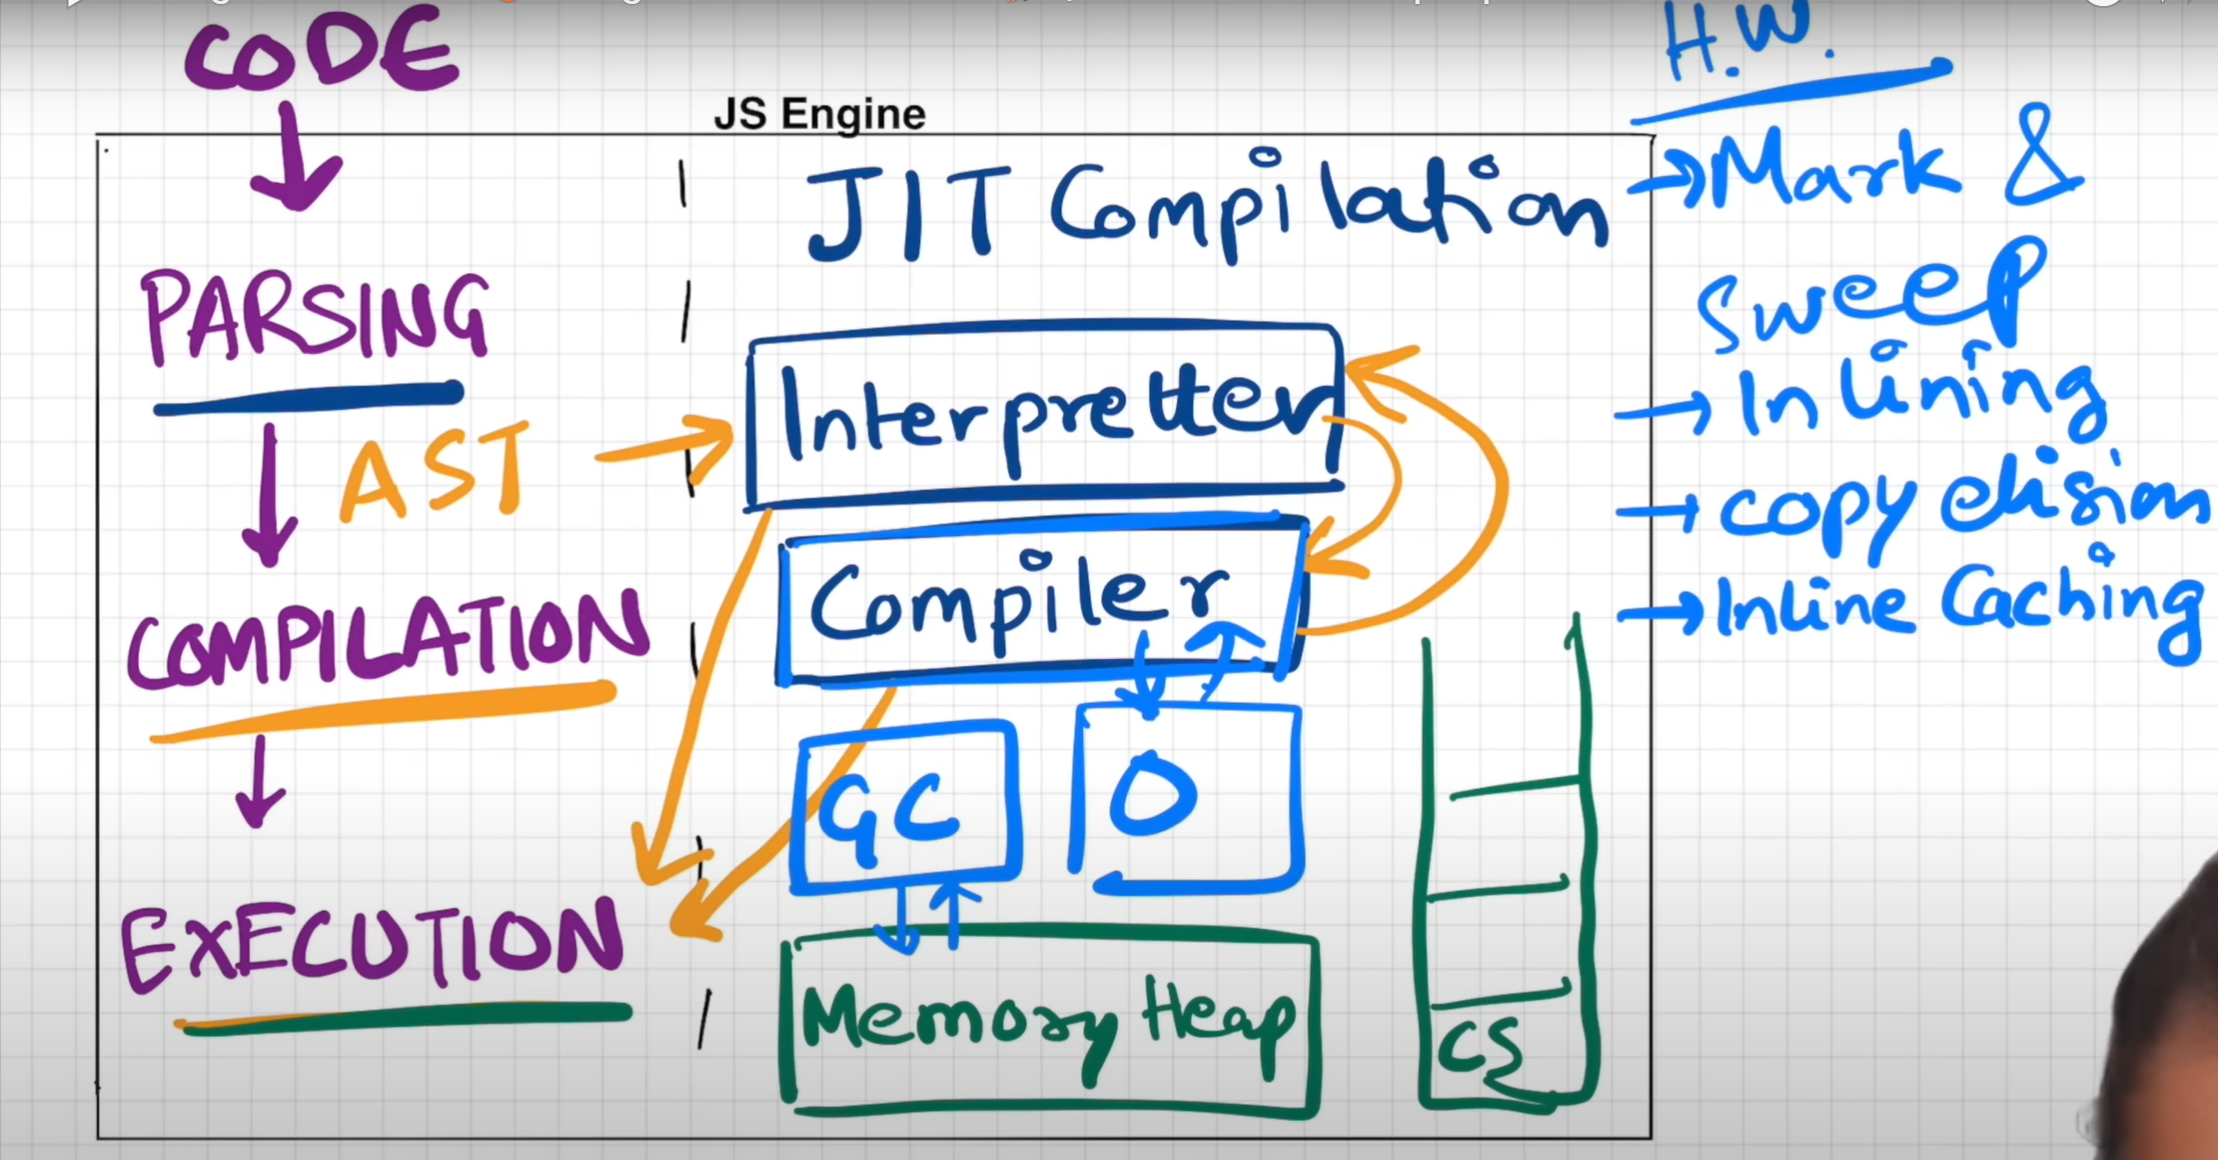 CODE
JS Engine
PARSING
AST
COMPILATION
EXECUTION
JIT Compilation
Interpretter
Compiler
GC
O
Memory Heap
CS
H.W.
→ Mark &
Sweep
→ Inlining
→ copy elision
→ Inline Caching